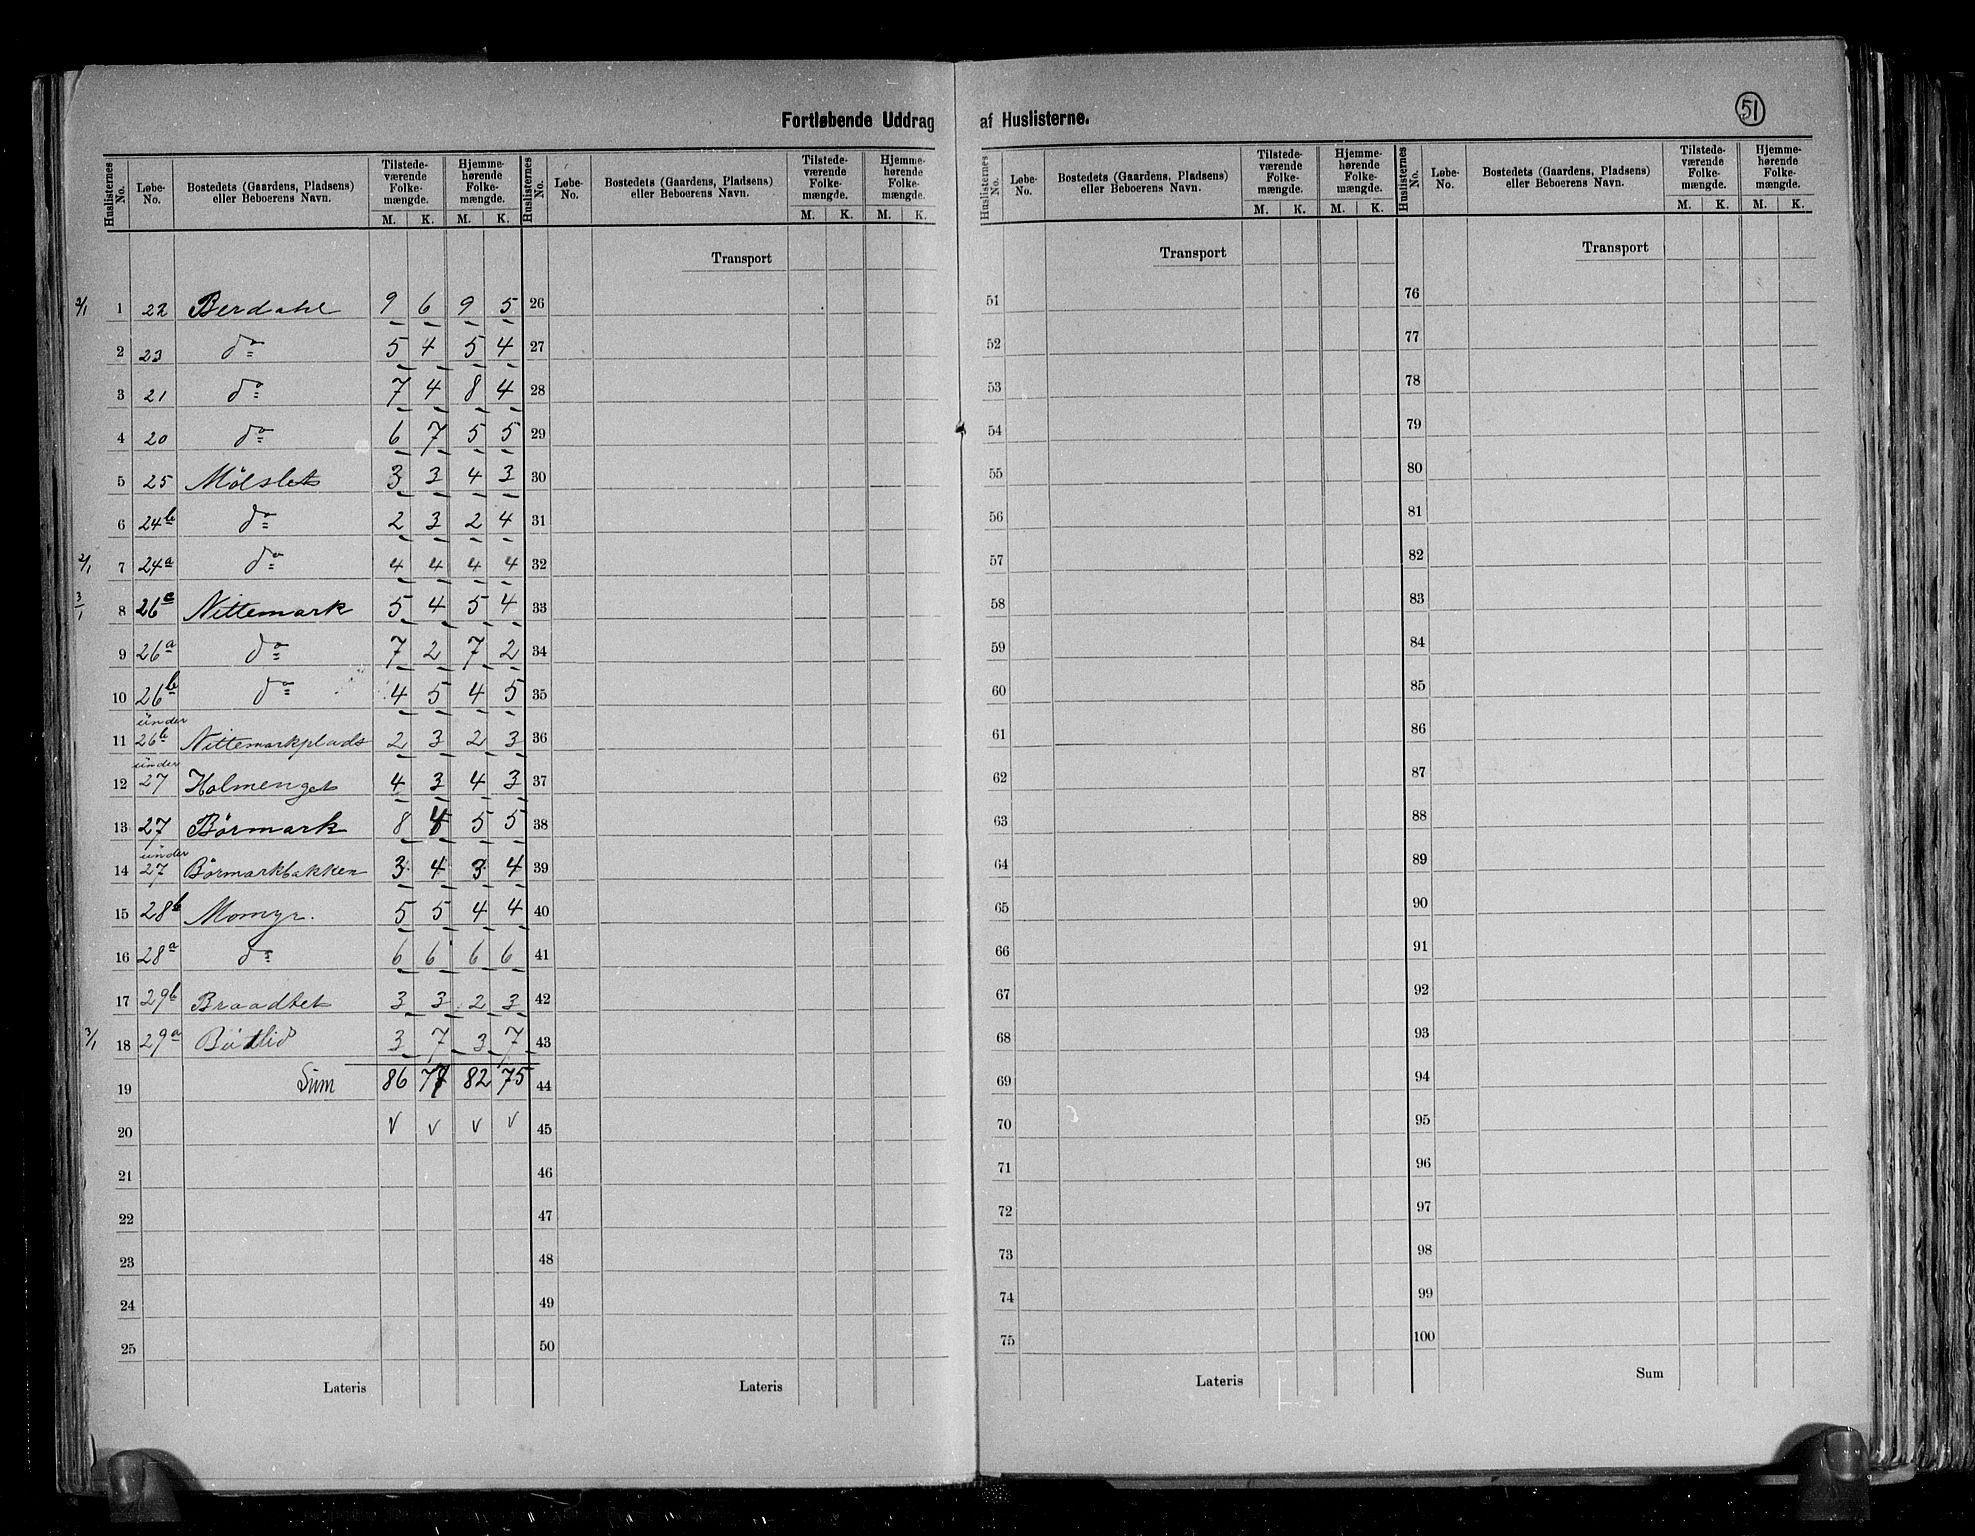 Fortløbende Uddrag af Huslisterne.
51
Huslisternes No. | Løbe-No. | Bostedets (Gaardens, Pladsens) eller Beboerens Navn. | Tilstede-værende Folke-mængde. M. K. | Hjemme-hørende Folke-mængde. M. K.
Huslisternes No. | Løbe-No. | Bostedets (Gaardens, Pladsens) eller Beboerens Navn. | Tilstede-værende Folke-mængde. M. K. | Hjemme-hørende Folke-mængde. M. K.
Huslisternes No. | Løbe-No. | Bostedets (Gaardens, Pladsens) eller Beboerens Navn. | Tilstede-værende Folke-mængde. M. K. | Hjemme-hørende Folke-mængde. M. K.
Huslisternes No. | Løbe-No. | Bostedets (Gaardens, Pladsens) eller Beboerens Navn. | Tilstede-værende Folke-mængde. M. K. | Hjemme-hørende Folke-mængde. M. K.
2/1 1 22 Berdahl 9 6 9 5
2 23 do 5 4 5 4
3 21 do 7 4 8 4
4 20 do 6 7 5 5
5 25 Mølslet 3 3 4 3
6 24b do 2 3 2 4
2/1 7 24a do 4 4 4 4
3/1 8 26c Nittemark 5 4 5 4
9 26a do 7 2 7 2
10 26b do 4 5 4 5
11 under 26b Nittemarkplads 2 3 2 3
12 under 27 Holmenget 4 3 4 3
13 27 Børmark 8 4 5 5
14 under 27 Børmarkbakken 3 4 3 4
15 28b Momyr. 5 5 4 4
16 28a do 6 6 6 6
17 29b Braadtet 3 3 2 3
3/1 18 29a 3 7 3 7
19 Sum 86 77 82 75
20 v v v v
21
22
23
24
25
Lateris
Transport
26
27
28
29
30
31
32
33
34
35
36
37
38
39
40
41
42
43
44
45
46
47
48
49
50
Lateris
Transport
51
52
53
54
55
56
57
58
59
60
61
62
63
64
65
66
67
68
69
70
71
72
73
74
75
Lateris
Transport
76
77
78
79
80
81
82
83
84
85
86
87
88
89
90
91
92
93
94
95
96
97
98
99
100
Sum